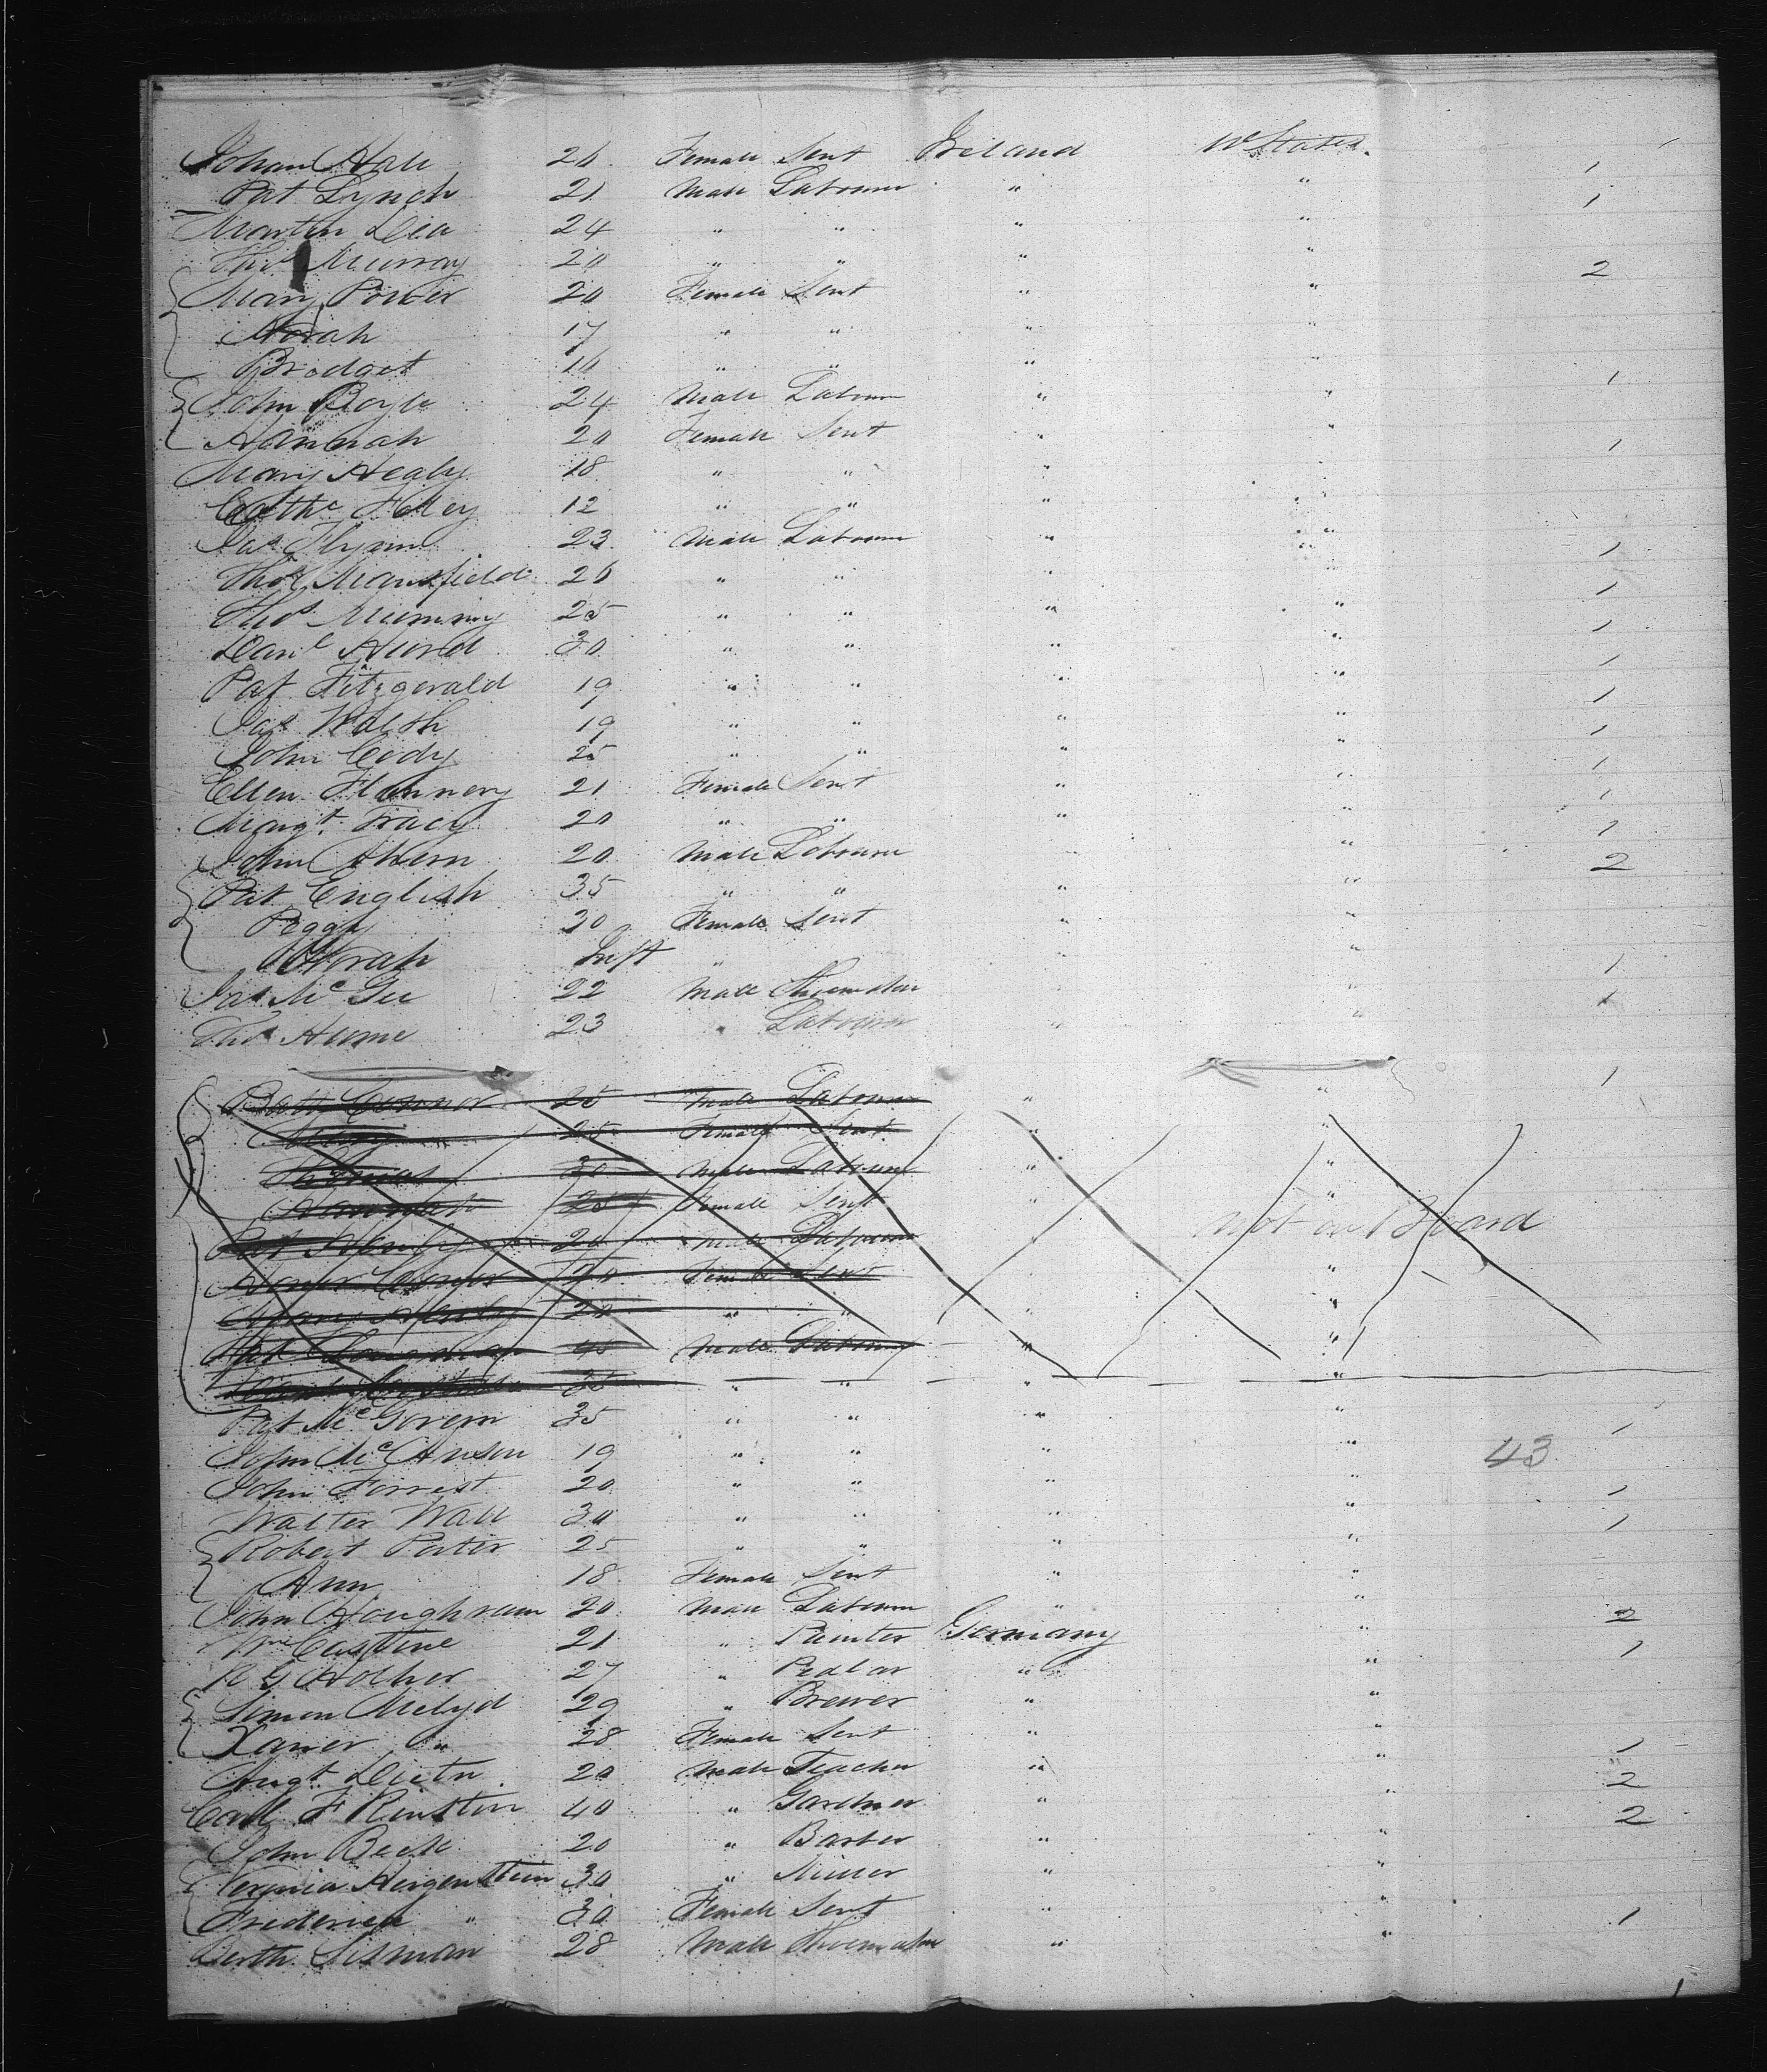 Johan Hall 26 Female Sert Ireland U States
Pat Lynch 21 Male Labourer " " 1
Martin Dea 24 " " " " 1
Thos Murray 20 " " " "
Mary Power 20 Female Sert " " 2
Norah 17 " " " "
Bridget 16 " " " "
John Boyle 24 Male Labourer " " 1
Hannah 20 Female Sert " "
Mary Healy 18 " " " " 1
Cathe Foley 12 " " " "
Jas Flynn 23 Male Labourer " "
Thos Mansfield 26 " " " " 1
Thos Mummy 25 " " " " 1
Danl Hurd 30 " " " " 1
Pat Fitzgerald 19 " " " " 1
Jas Walsh 19 " " " " 1
John Cody 25 " " " " 1
Ellen Flannery 21 Female Sert " " 1
Margt Tracy 20 " " " " 1
John Ahern 20 Male Labourer " " 1
Pat English 35 " " " " 2
Peggy 30 Female Sert " "
Norah Inft " " "
Jas McGee 22 Male Shoemaker " " 1
Thos Hume 23 " Labourer " " 1
Patk Connor 25 Male Labourer " " 1
Mary " 25 Female Sert " "
Thomas 30 Male Labourer " "
Hannah 25 Female Sert " "
Pat Henly 20 Male Labourer " not on Board
Honor Connor 20 Female Sert "
Mary Henly 20 " " " "
Pat 45 Male Labourer " "
35 " " " "
Pat McGovern 35 " " " " 1
John McAnson 19 " " " " 43
John Forrest 20 " " " " 1
Walter Wall 30 " " " " 1
Robert Porter 25 " " " "
Ann 18 Female Sert " "
John Houghram 20 Male Labourer " " 2
Wm Castine 21 " Painter Germany " 1
R G Hother 27 " Pedlar " "
Simon Melyd 29 " Brewer " "
Xavier " 28 Female Sert " "
Augt Dietn 20 Male Teacher " " 1
Carl F Rinstin 40 " Gardner " " 2
John Beck 20 " Barber " " 2
Verginia Hergenstein 30 " Miller " "
Frederica " 30 Female Sert " "
Berth Sisman 28 Male Shoemaker " " 1